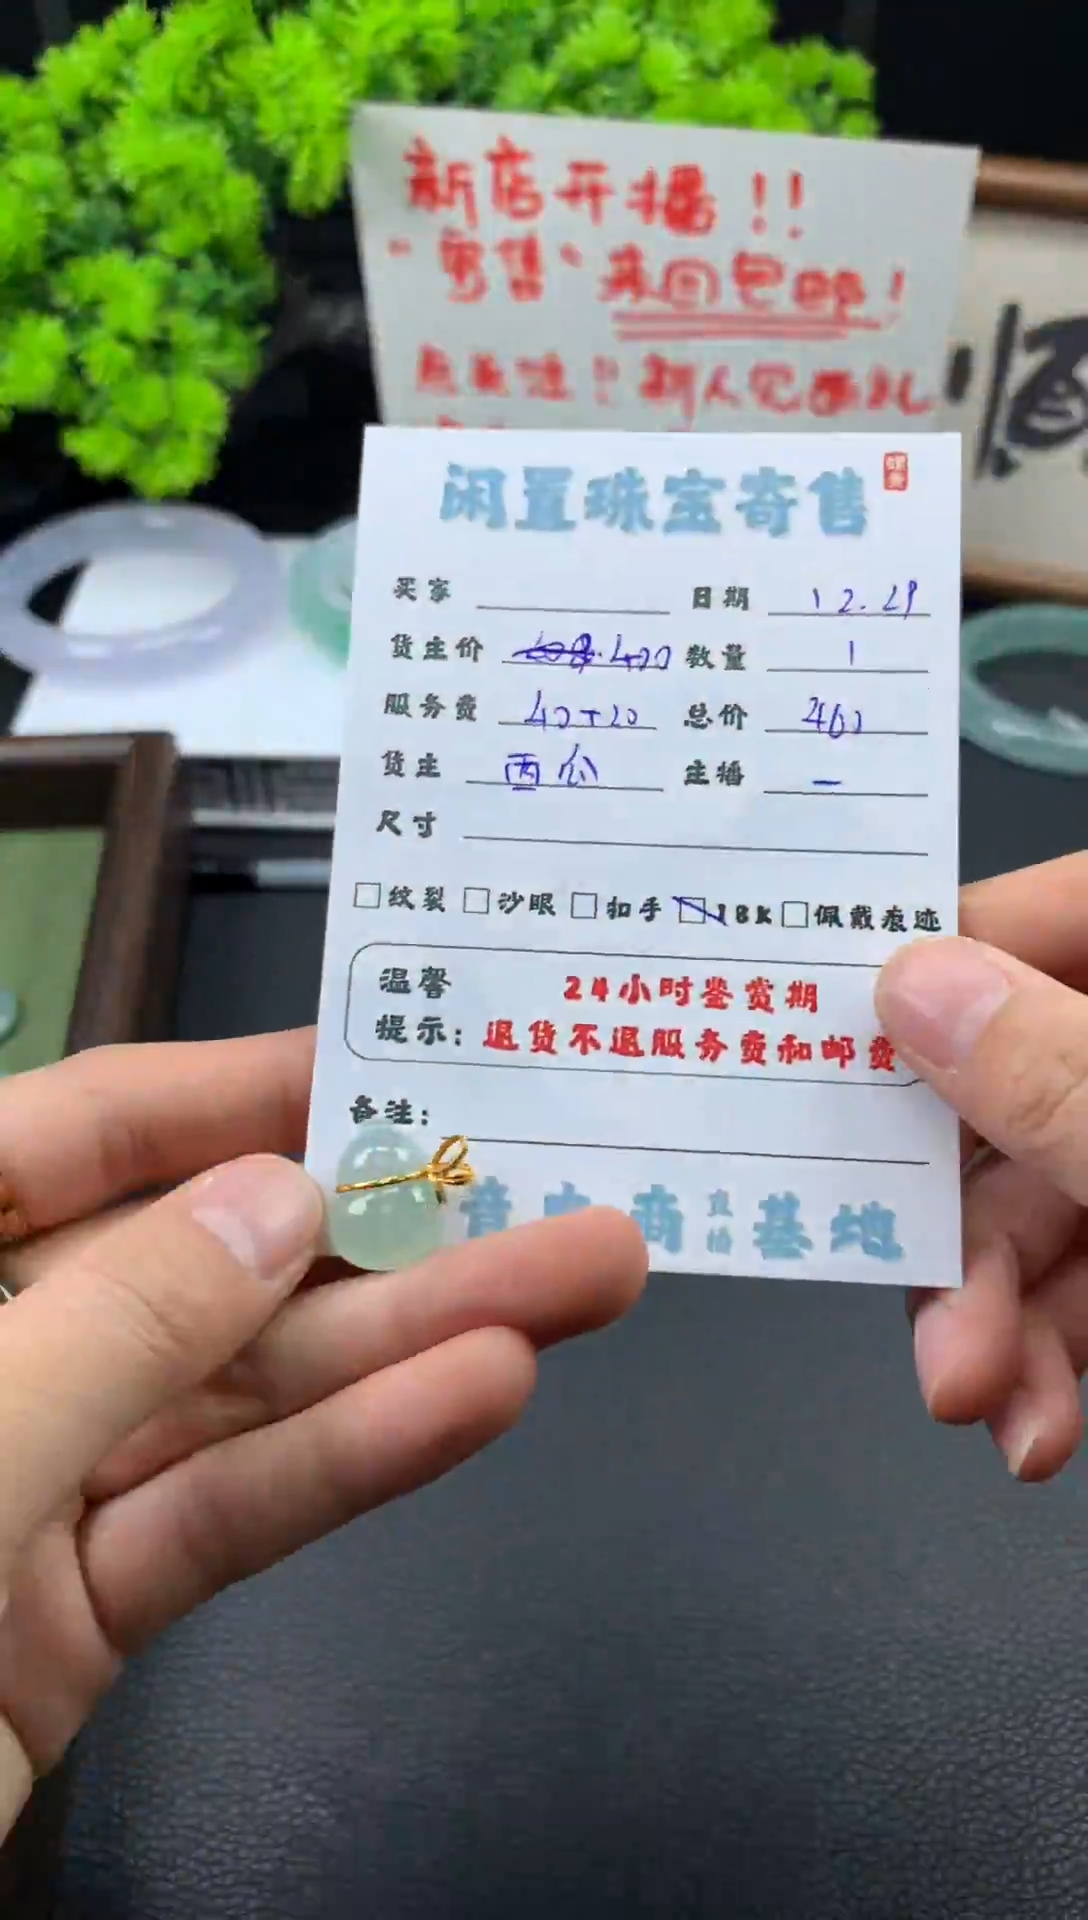 新店开播！！
"寄售"来回包邮！
点关注！新人见面礼
闲置珠宝寄售
买家 日期 12.29
货主价 400 数量 1
服务费 40+20 总价 460
货主 西瓜 主播 一
尺寸
纹裂 沙眼 扣手 18K 佩戴痕迹
温馨 24小时鉴赏期
提示：退货不退服务费和邮费
备注：
音 商 直播 基地